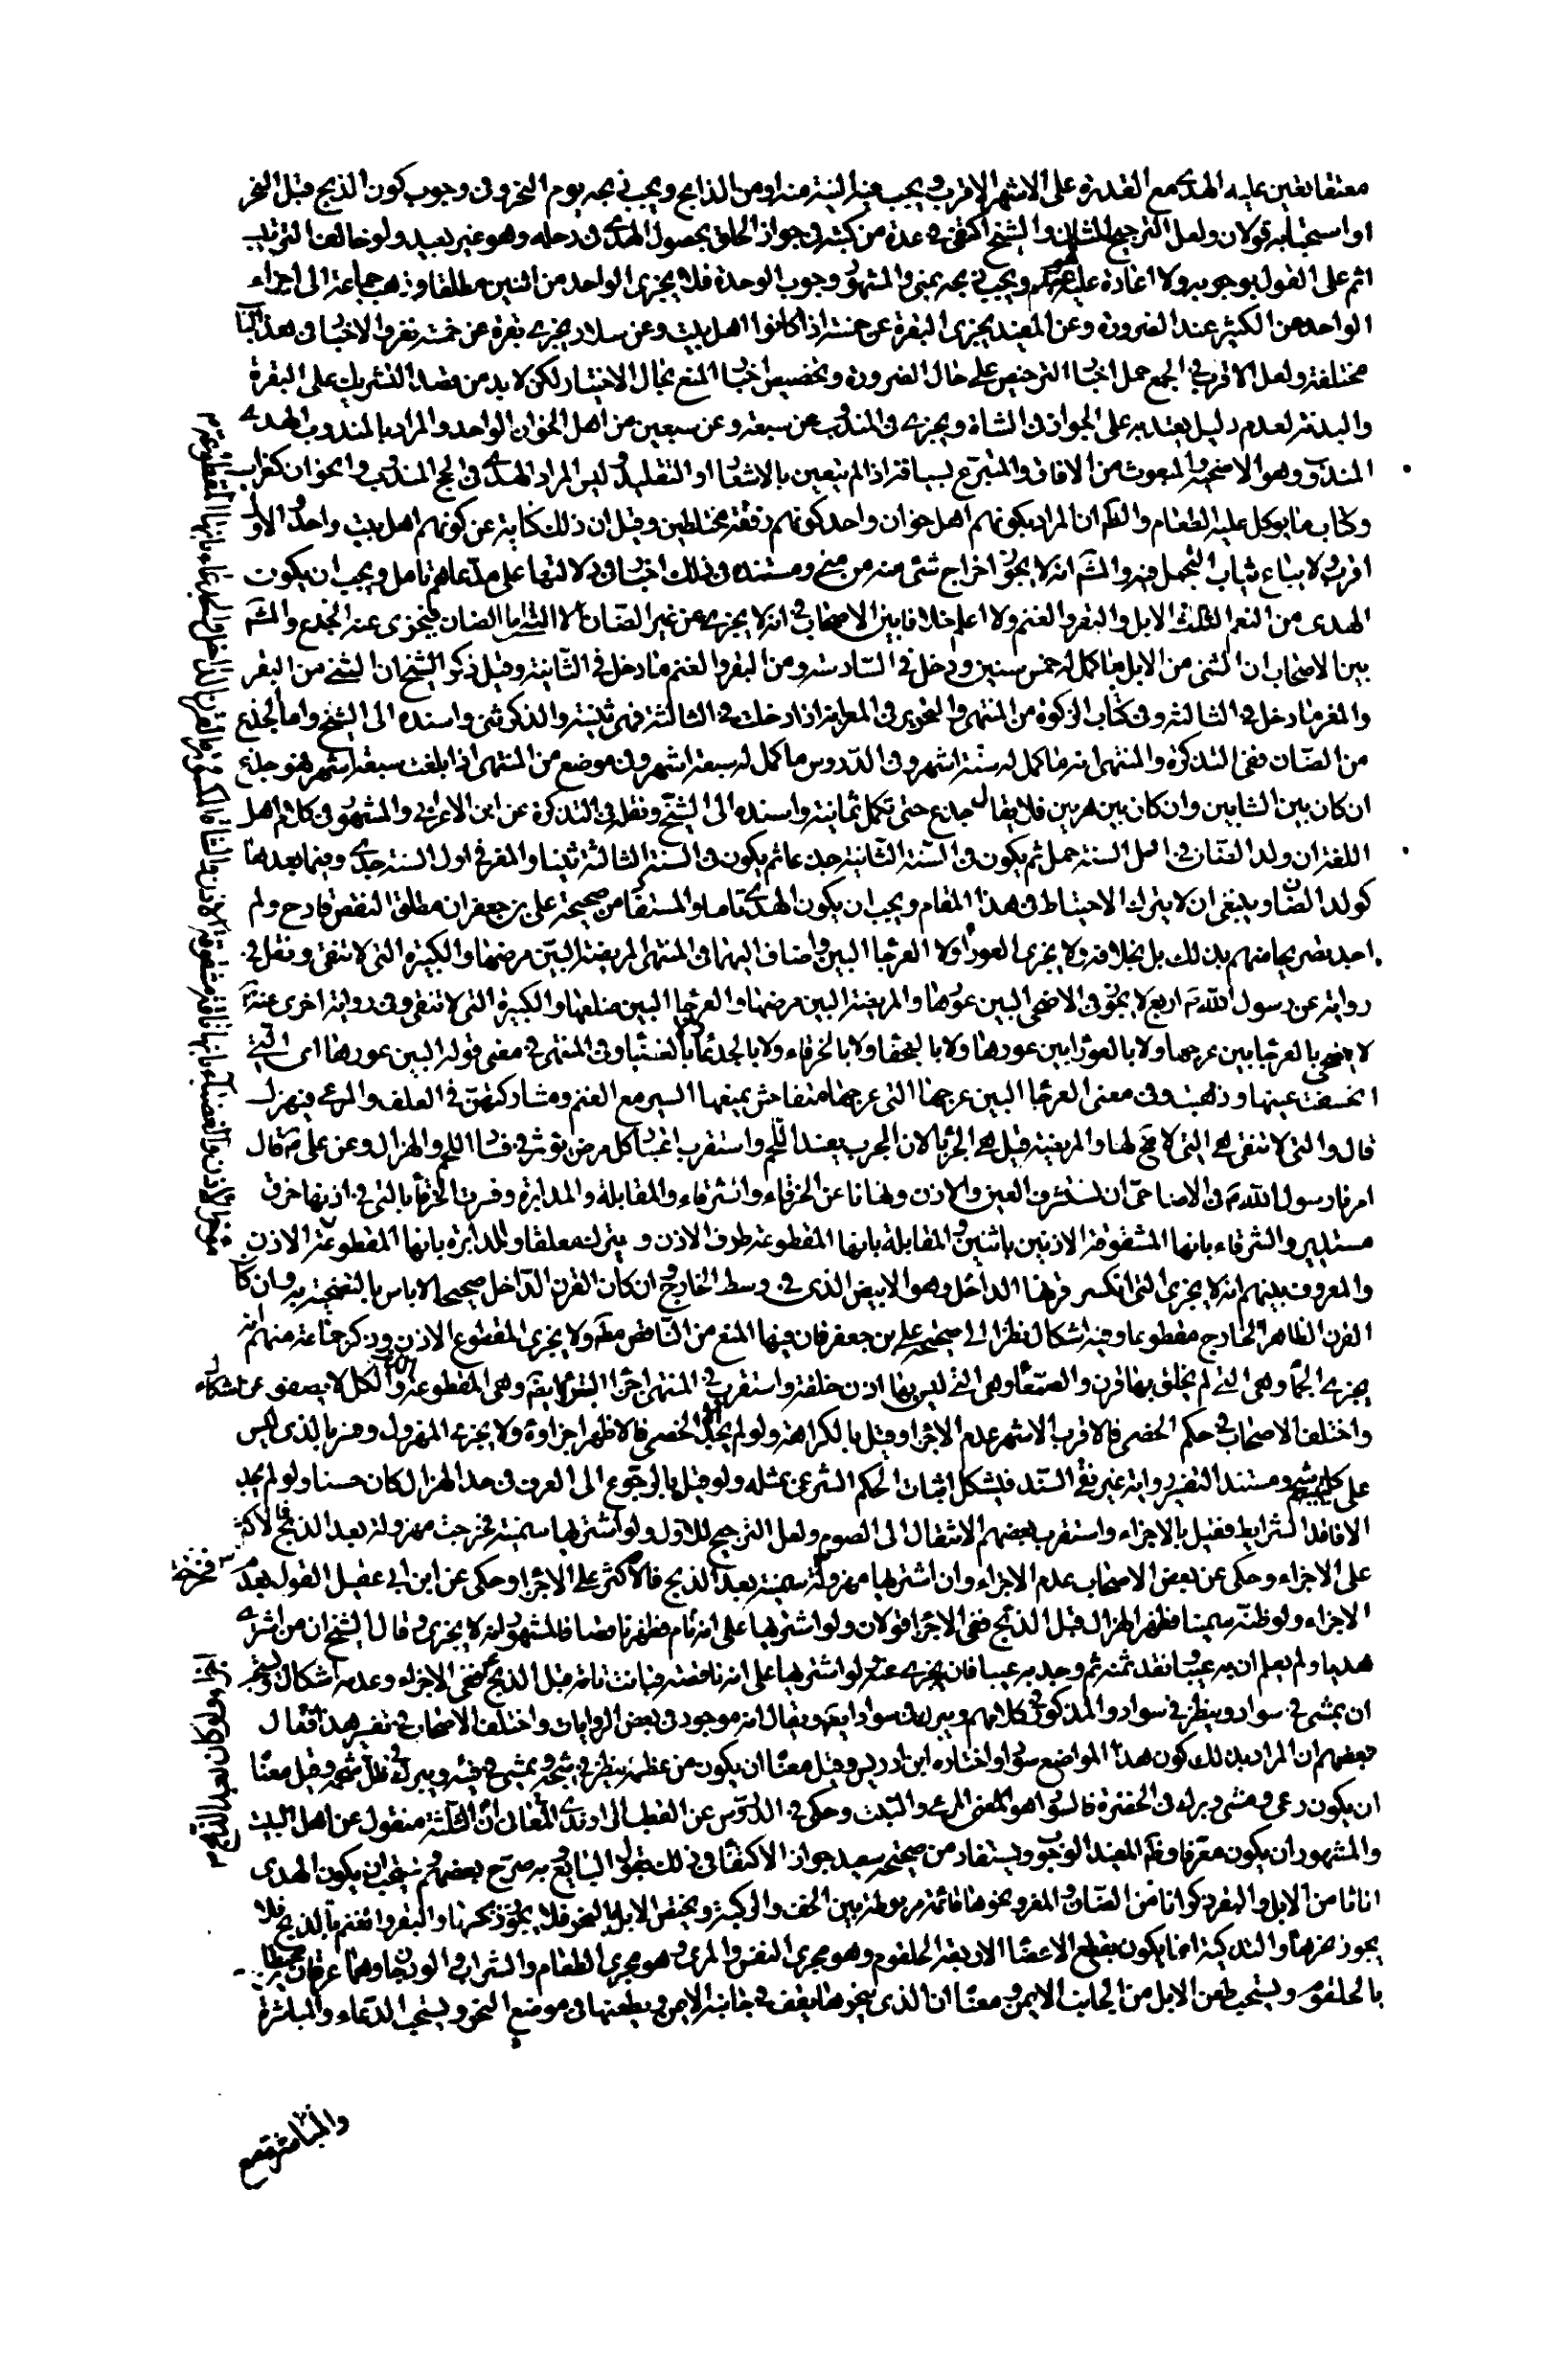 معتقا تعين عليه الهدى مع القدرة على الاشهر الاقرب ويجب فيه النية منه او من الذابح ويجب ذبحه يوم النحر وفى وجوب كون الذبح قبل النحر
او استحبابه قولان ولعل الترجيح للثانى والشيخ اكتفى فى عدة من كتبه فى جواز الحلق بحصول الهدى فى رحله وهو غير بعيد ولو خالف الترتيب
اثم على القول بوجوبه ولا اعادة عليه ويجب ذبحه بمنى والمشهور وجوب الوحدة فلا يجزى الواحد من اثنين مطلقا وذهب جماعة الى اجزاء
الواحد عن الكثير عند الضرورة وعن المفيد يجزى البقرة عن خمسة اذا كانوا اهل بيت وعن سلار يجزى بقرة عن خمسة نفر والاخبار فى هذا الباب
مختلفة ولعل الاقرب فى الجمع حمل اخبار الترخيص على حال الضرورة وتخصيص اخبار المنع بحال الاختيار لكن لا بد من قصد التشريك على البقرة
والبدنة لعدم دليل يعتد به على الجواز فى الشاة ويجزى فى المندوب عن سبعة وعن سبعين من اهل الخوان الواحد والمراد بالمندوب الهدى
المندوب وهو الاضحية والمبعوث من الافاق والمتبرع بسياقته اذا لم يتعين بالاشعار او التقليد وليس المراد الهدى فى الحج المندوب والخوان كغراب
وكتاب ما يوكل عليه الطعام والظ ان المراد بكونهم اهل خوان واحد كونهم رفقة مختلطين وقيل ان ذلك كناية عن كونهم اهل بيت واحد والاول
اقرب ولا يباع ثياب التجمل فيه والمشه انه لا يجوز اخراج شئ منه من منى ومستنده فى ذلك اخبار فى دلالتها على مدعاهم تامل ويجب ان يكون
الهدى من النعم الثلث الابل والبقر والغنم ولا اعلم خلافا بين الاصحاب فى انه لا يجزى من غير الضان الا الثنى اما الضان فيجزى عنه الجذع والمشه
بين الاصحاب ان الثنى من الابل ما كمل له خمس سنين ودخل فى السادسة ومن البقر والغنم ما دخل فى الثانية وقيل ذكر الشيخ ان الثنى من البقر
والمعز ما دخل فى الثالثة وفى كتاب الزكوة من المنتهى والتحرير فى المعز انه اذا دخلت فى الثالثة فهى ثنية والذكر ثنى واسنده الى الشيخ واما الجذع
من الضان ففى التذكرة والمنتهى انه ما كمل له ستة اشهر وفى الدروس ما كمل له سبعة اشهر وفى موضع من المنتهى اذا بلغت سبعة اشهر فهو جذع
ان كان بين الشابين وان كان بين هرمين فلا يقال جذع حتى تكمل ثمانية واسنده الى الشيخ ونقله فى التذكرة عن ابن الاعرابى والمشهور فى كلام اهل
اللغة ان ولد الضان فى اول السنة حمل ثم يكون فى السنة الثانية جذعا ثم يكون فى السنة الثالثة ثنيا والمعز فى اول السنة جدى وفيما بعدها
كولد الضان وينبغى ان لا يترك الاحتياط فى هذا المقام ويجب ان يكون الهدى تاما والمستفاد من صحيحة على بن جعفر ان مطلق النقص قادح ولم
اجد تصريحا منهم بذلك بل بخلافه ولا يجزى العوراء ولا العرجاء البين واضاف اليهما فى المنتهى المريضة البين مرضها والكبيرة التى لا تنقى ونقل فى
رواية عن رسول الله ص اربع لا يجوز فى الاضحى البين عورها والمريضة البين مرضها والعرجاء البين ضلعها والكبيرة التى لا تنقى وفى رواية اخرى عنه
لا يضحى بالعرجاء بين عرجها ولا بالعوراء بين عورها ولا بالعجفاء ولا بالخرقاء ولا بالجدعاء ولا بالعضباء وفى المنتهى فى معنى قوله البين عورها اى التى
انخسفت عينها وذهبت وفى معنى العرجاء البين عرجها التى عرجها متفاحش يمنعها السير مع الغنم ومشاركتهن فى العلف والرعى فتهزل
قال والتى لا تنقى هى التى لا مخ لها والمريضة قيل هى الجرباء لان الجرب يفسد اللحم واستقرب اعتبار كل مرض يوثر فى فساد اللحم والهزال وعن على ع قال
امرنا رسول الله ص فى الاضاحى ان نستشرف العين والاذن ونهانا عن الخرقاء والشرقاء والمقابلة والمدابرة وفسرت الخرقاء بالتى فى اذنها خرق
مستدير والشرقاء بانها المشقوقة الاذنين باثنتين والمقابلة بانها المقطوعة طرف الاذن ويترك معلقا والمدابرة بانها المقطوعة الاذن
والمعروف بينهم انه لا يجزى التى انكسر قرنها الداخل وهو الابيض الذى فى وسط الخارج وان كان القرن الداخل صحيحا لا باس بالتضحية به وان كان
القرن الظاهر الخارج مقطوعا وفيه اشكال نظرا الى صحيحة على بن جعفر فان فيها المنع من الناقص مط ولا يجزى المقطوع الاذن وذكر جماعة منهم انه
يجزى الجماء وهى التى لم يخلق بها قرن والصمعاء وهى التى ليس بها اذن خلقة واستقرب فى المنتهى اجزاء البتراء ايضا وهى المقطوعة الذنب والكل لا يصفو عن اشكال
واختلف الاصحاب فى حكم الخصى فالاقرب الاشهر عدم الاجزاء وقيل بالكراهة ولو لم يجد الا الخصى فالاظهر اجزاؤه ولا يجزى المهزول وفسر بالذى ليس
على كليتيه شحم ومستند التفسير رواية غير نقى السند فيشكل اثبات الحكم الشرعى بمثله ولو قيل بالرجوع الى العرف فى حد الهزال كان حسنا ولو لم يجد
الا فاقد الشرايط فقيل بالاجزاء واستقرب بعضهم الانتقال الى الصوم ولعل الترجيح للاول ولو اشتريها سمينة فخرجت مهزولة بعد الذبح فالاكثر
على الاجزاء وحكى عن بعض الاصحاب عدم الاجزاء وان اشتريها مهزولة فخرجت سمينة بعد الذبح فالاكثر على الاجزاء وحكى عن ابن ابى عقيل القول بعدم
الاجزاء ولو ظنه سمينا فظهر الهزال قبل الذبح ففى الاجزاء قولان ولو اشتريها على انه تام فظهر ناقصا فالمشهور انه لا يجزى وقال الشيخ ان من اشترى
هديا ولم يعلم ان به عيبا ونقد ثمنه ثم وجد به عيبا فان يجزى عنه ولو اشتريها على انه ناقصة فبانت تامة قبل الذبح ففى الاجزاء وعدمه اشكال ويستحب
ان يمشى فى سواد وينظر فى سواد والمذكور فى كلامهم ويبرك فى سواد ايضا ويقال انه موجود فى بعض الروايات واختلف الاصحاب فى تفسير هذا فقال
بعضهم ان المراد بذلك كون هذه المواضع سوادا واختاره ابن ادريس وقيل معناه ان يكون من عظمه ينظر فى شحمه ويمشى فى فيئه ويبرك فى ظل شحمه وقيل معناه
ان يكون رعى ومشى وبرك فى الخضرة فالسواد هو المرعى والنبت وحكى فى الدروس عن القطب الراوندى ان المعانى الثلثة منقول عن اهل البيت
والمشهور ان يكون معرفا وظ المفيد الوجوب ويستفاد من صحيحة سعيد جواز الاكتفاء فى ذلك بقول البايع وبه صرح بعضهم ويستحب ان يكون الهدى
اناثا من الابل والبقر وذكرانا من الضان والمعز ونحرها قائمة مربوطة بين الخف والركبة ويختص الابل بالنحر فلا يجوز ذبحها والبقر والغنم بالذبح فلا
يجوز نحرها والتذكية انما يكون بقطع الاعضاء الاربعة الحلقوم وهو مجرى النفس والمرى وهو مجرى الطعام والشراب والودجان وهما عرقان محيطان
بالحلقوم ويستحب طعن الابل من الجانب الايمن ومعناه ان الذى ينحرها يقف فى جانبه الايمن ويطعنها فى موضع النحر ويستحب الدعاء والمباشرة
فخرجت
والمباشرة مع